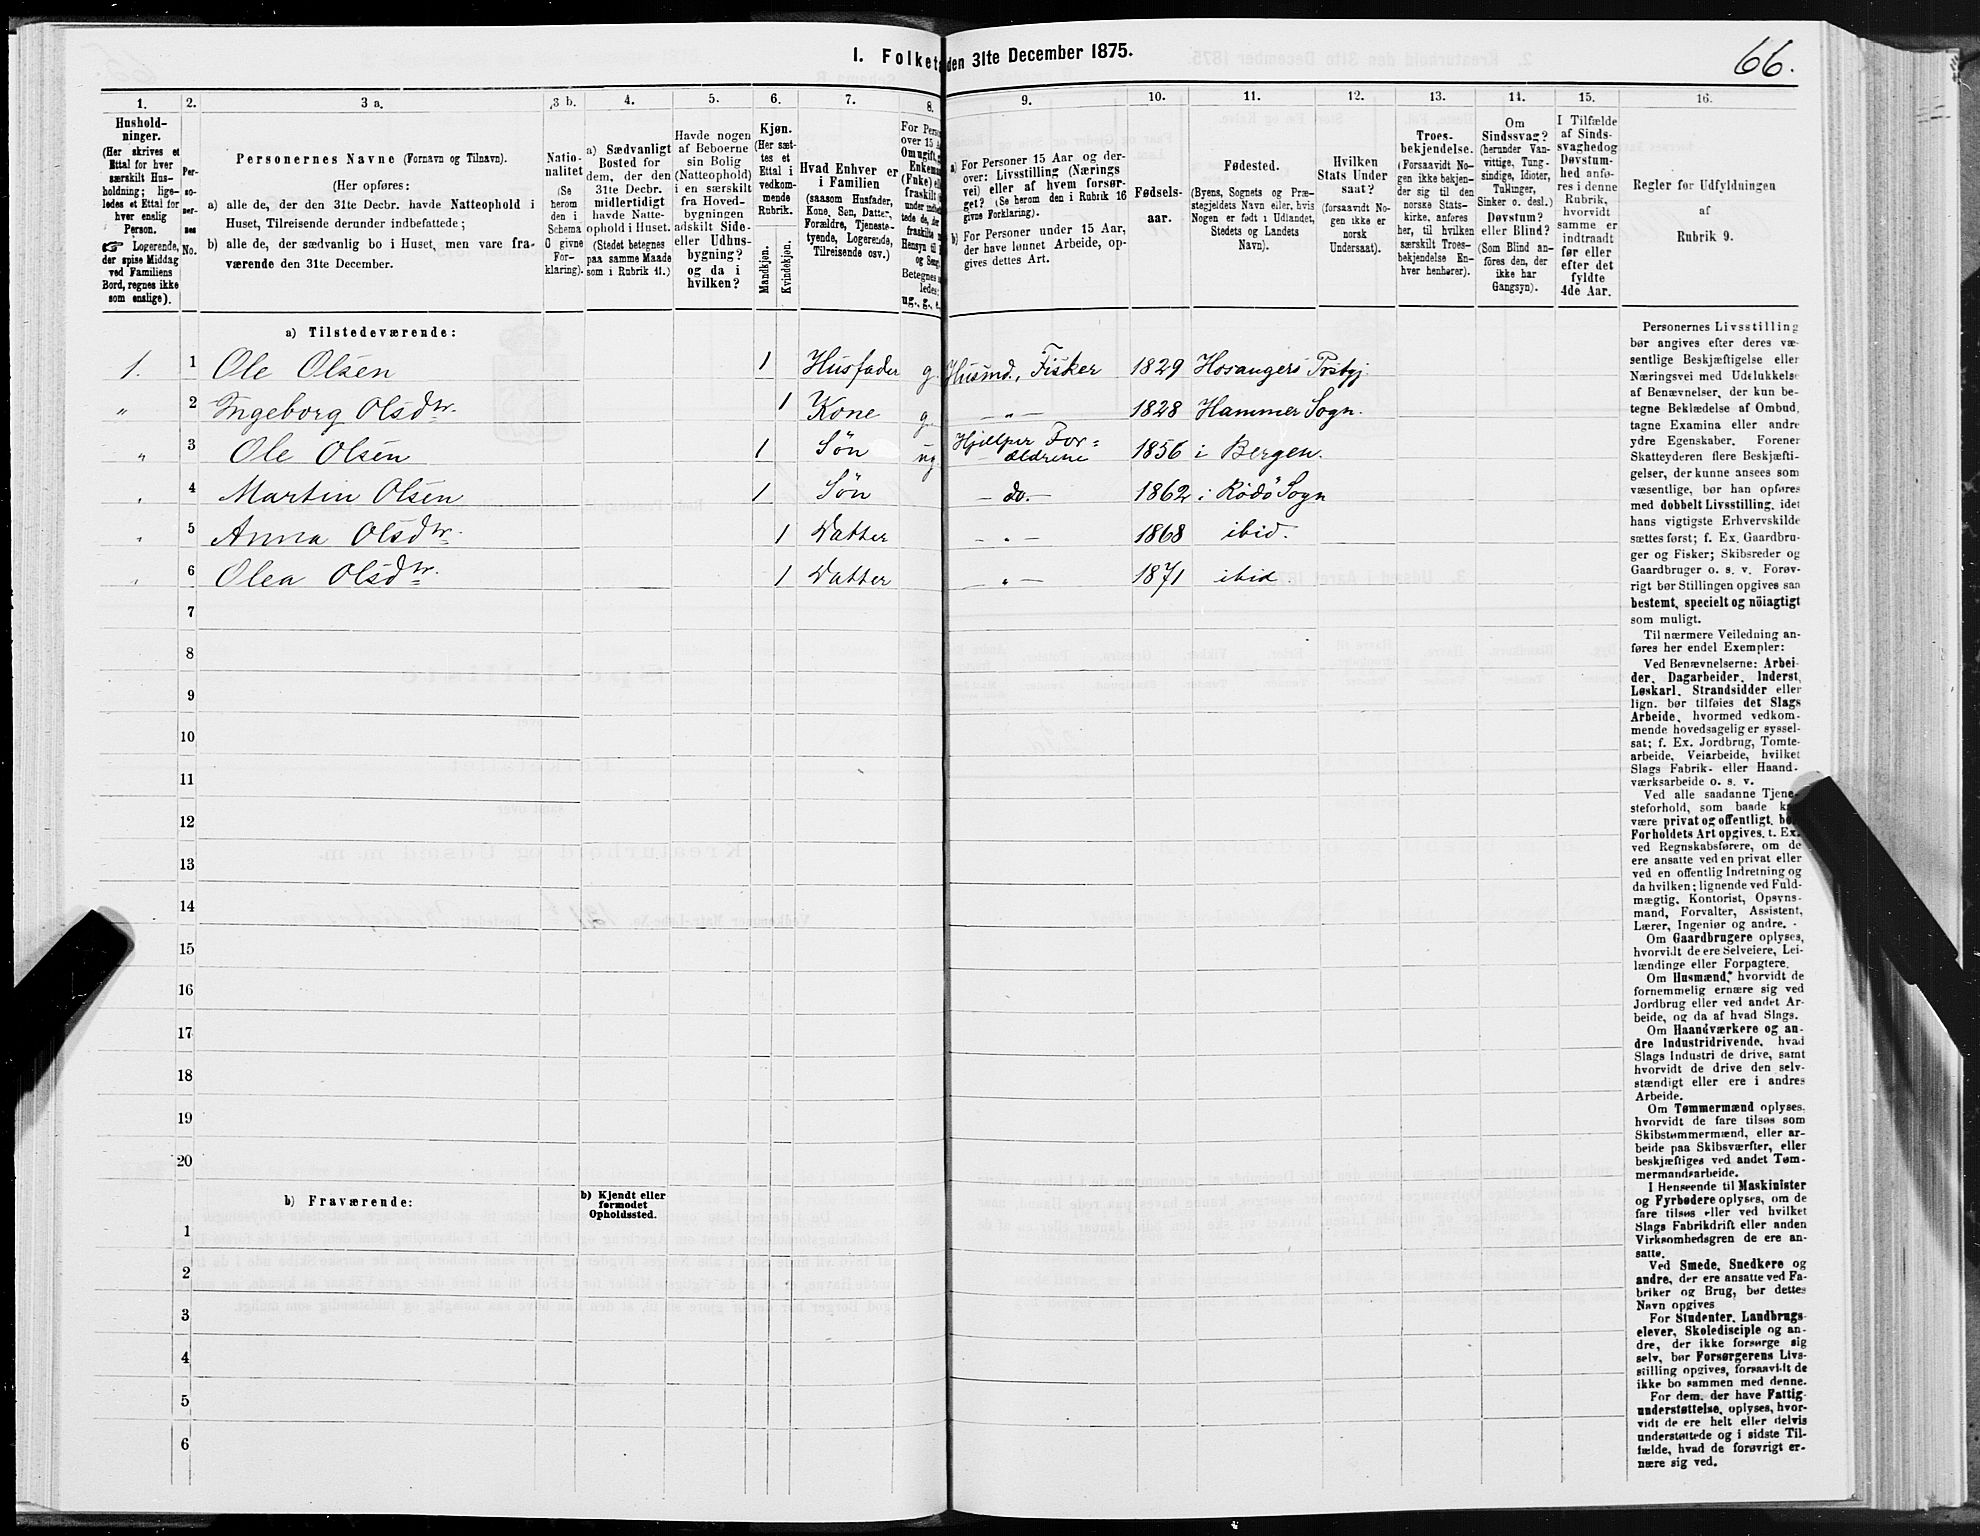 66.
I. Folketæ
den 31te December 1875.
1.
2.
3 a.
3 b.
4.
5.
6.
7.
8.
9.
10.
11.
12.
13.
14.
15.
16.
Hushold-
ninger.
(Her skrives et
Ettal for hver
særskilt Hus-
holdning; lige-
ledes et Ettal for
hver enslig
Person.
☞ Logerende,
der spise Middag
ved Familiens
Bord, regnes ikke
som enslige).
Per-
so-
ner-
nes
No.
Personernes Navne (Fornavn og Tilnavn).
(Her opføres:
a) alle de, der den 31te Decbr. havde Natteophold i
Huset, Tilreisende derunder indbefattede;
b) alle de, der sædvanlig bo i Huset, men vare fra-
værende den 31te December.
Natio-
nalitet
(Se
herom
den i
Schema
O givne
For-
klaring).
a) Sædvanligt
Bosted for
dem, der den
31te Decbr.
midlertidigt
havde Natte-
ophold i Huset.
(Stedet betegnes
paa samme Maade
som i Rubrik 11.)
Havde nogen
af Beboerne
sin Bolig
(Natteophold)
i en særskilt
fra Hoved-
bygningen
adskilt Side-
eller Udhus-
bygning?
og da i
hvilken?
Kjøn.
(Her sæt-
tes et
Ettal i
vedkom-
mende
Rubrik.
Mandkjøn.
Kvindekjøn.
Hvad Enhver er
i Familien
(saasom Husfader,
Kone, Søn, Datter,
Forældre, Tjeneste-
tyende, Logerende,
Tilreisende osv.)
For Perso
over 15 A
Om ugift, g
Enkem
(Enke) el
fraskilt
under
tede de,
fraskilte
Hensyn til
og Seng
Betegnes
ledes:
ug., g., e.
a) For Personer 15 Aar og der-
over: Livsstilling (Nærings
vei) eller af hvem forsør-
get? (Se herom den i Rubrik 16
givne Forklaring).
b) For Personer under 15 Aar,
der have lønnet Arbeide, op-
gives dettes Art.
Fødsels-
aar.
Fødested.
(Byens, Sognets og Præ-
stegjeldets Navn eller, hvis
Nogen er født i Udlandet,
Stedets og Landets
Navn).
Hvilken
Stats Under
saat?
(forsaavidt No-
gen ikke er
norsk
Undersaat).
Troes-
bekjendelse.
(Forsaavidt No-
gen ikke bekjen-
der sig til den
norske Stats-
kirke, anføres
her, til hvilken
særskilt Troes-
bekjendelse En-
hver henhører).
Om
Sindssvag?
(herunder Van-
vittige, Tung-
sindige, Idioter,
Tullinger,
Sinker o. desl.)
Døvstum?
eller Blind?
(Som Blind an-
føres den, der
ikke har
Gangsyn).
I Tilfælde
af Sinds-
svaghed og
Døvstum-
hed anfø-
res i denne
Rubrik,
hvorvidt
samme er
indtraadt
før eller
efter det
fyldte
4de Aar.
Regler før Udfyldningen
af
Rubrik 9.
a) Tilstedeværende:
1. 1 Ole Olsen 1 Husfader g. Husmd., Fisker 1829 Hosangers Prstgj.
" 2 Ingeborg Olsdtr. 1 Kone g. — " — 1828 Hammer Sogn.
" 3 Ole Olsen 1 Søn ug. Hjælper For=
ældrene 1856 i Bergen.
" 4 Martin Olsen 1 Søn — do. — 1862 i Rødø Sogn
" 5 Anna Olsdtr. 1 Datter — " — 1868 ibid.
" 6 Olea Olsdtr. 1 Datter — " — 1871 ibid
7
8
9
10
11
12
13
14
15
16
17
18
19
20
b) Fraværende:
b) Kjendt eller
formodet
Opholdssted.
1
2
3
4
5
6
Personernes Livsstilling
bør angives efter deres væ-
sentlige Beskjæftigelse eller
Næringsvei med Udelukkelse
af Benævnelser, der kun be-
tegne Beklædelse af Ombud,
tagne Examina eller andre
ydre Egenskaber. Forener
Skatteyderen flere Beskjæfti-
gelser, der kunne ansees som
væsentlige, bør han opføres
med dobbelt Livsstilling, idet
hans vigtigste Erhvervskilde
sættes først; f. Ex. Gaardbru-
ger og Fisker; Skibsreder og
Gaardbruger o. s. v. Forøv-
rigt bør Stillingen opgives saa
bestemt, specielt og nöiagtigt
som muligt.
Til nærmere Veiledning an-
føres her endel Exempler:
Ved Benævnelserne: Arbei-
der, Dagarbeider, Inderst,
Løskarl, Strandsidder eller
lign. bør tilføies det Slags
Arbeide, hvormed vedkom-
mende hovedsagelig er syssel-
sat; f. Ex. Jordbrug, Tomte-
arbeide, Veiarbeide, hvilket
Slags Fabrik- eller Haand-
værksarbeide o. s. v.
Ved alle saadanne Tjene-
steforhold, som baade kan
være privat og offentligt, bør
Forholdets Art opgives. t. Ex.
ved Regnskabsførere, om de
ere ansatte ved en privat eller
ved en offentlig Indretning og
da hvilken; lignende ved Fuld-
mægtig, Kontorist, Opsyns-
mand, Forvalter, Assistent,
Lærer, Ingeniør og andre.
Om Gaardbrugere oplyses,
hvorvidt de ere Selveiere, Lei-
lændinge eller Forpagtere.
Om Husmænd, hvorvidt de
fornemmelig ernære sig ved
Jordbrug eller ved andet Ar-
beide, og da af hvad Slags.
Om Haandværkere og an-
dre Industridrivende, hvad
Slags Industri de drive, samt
hvorvidt de drive den selv-
stændigt eller ere i andres
Arbeide.
Om Tømmermænd oplyses,
hvorvidt de fare tilsøs som
Skibstømmermænd, eller ar-
beide paa Skibsværfter, eller
beskjæftiges ved andet Tøm-
mermandsarbeide.
I Henseende til Maskinister
og Fyrbødere oplyses, om de
fare tilsøs eller ved hvilket
Slags Fabrikdrift eller anden
Virksomhedsgren de ere an-
satte.
Ved Smede, Snedkere og
andre, der ere ansatte ved Fa-
briker og Brug, bør dettes
Navn opgives
For Studenter, Landbrugs-
elever, Skoledisciple og an-
dre, der ikke forsørge sig
selv, bør Forsørgerens Livs-
stilling opgives, forsaavidt de
ikke bo sammen med denne.
For dem, der have Fattig-
understøttelse, oplyses, hvor-
vidt de ere helt eller delvis
understøttede og i sidste Til-
fælde, hvad de forøvrigt er-
nære sig ved.